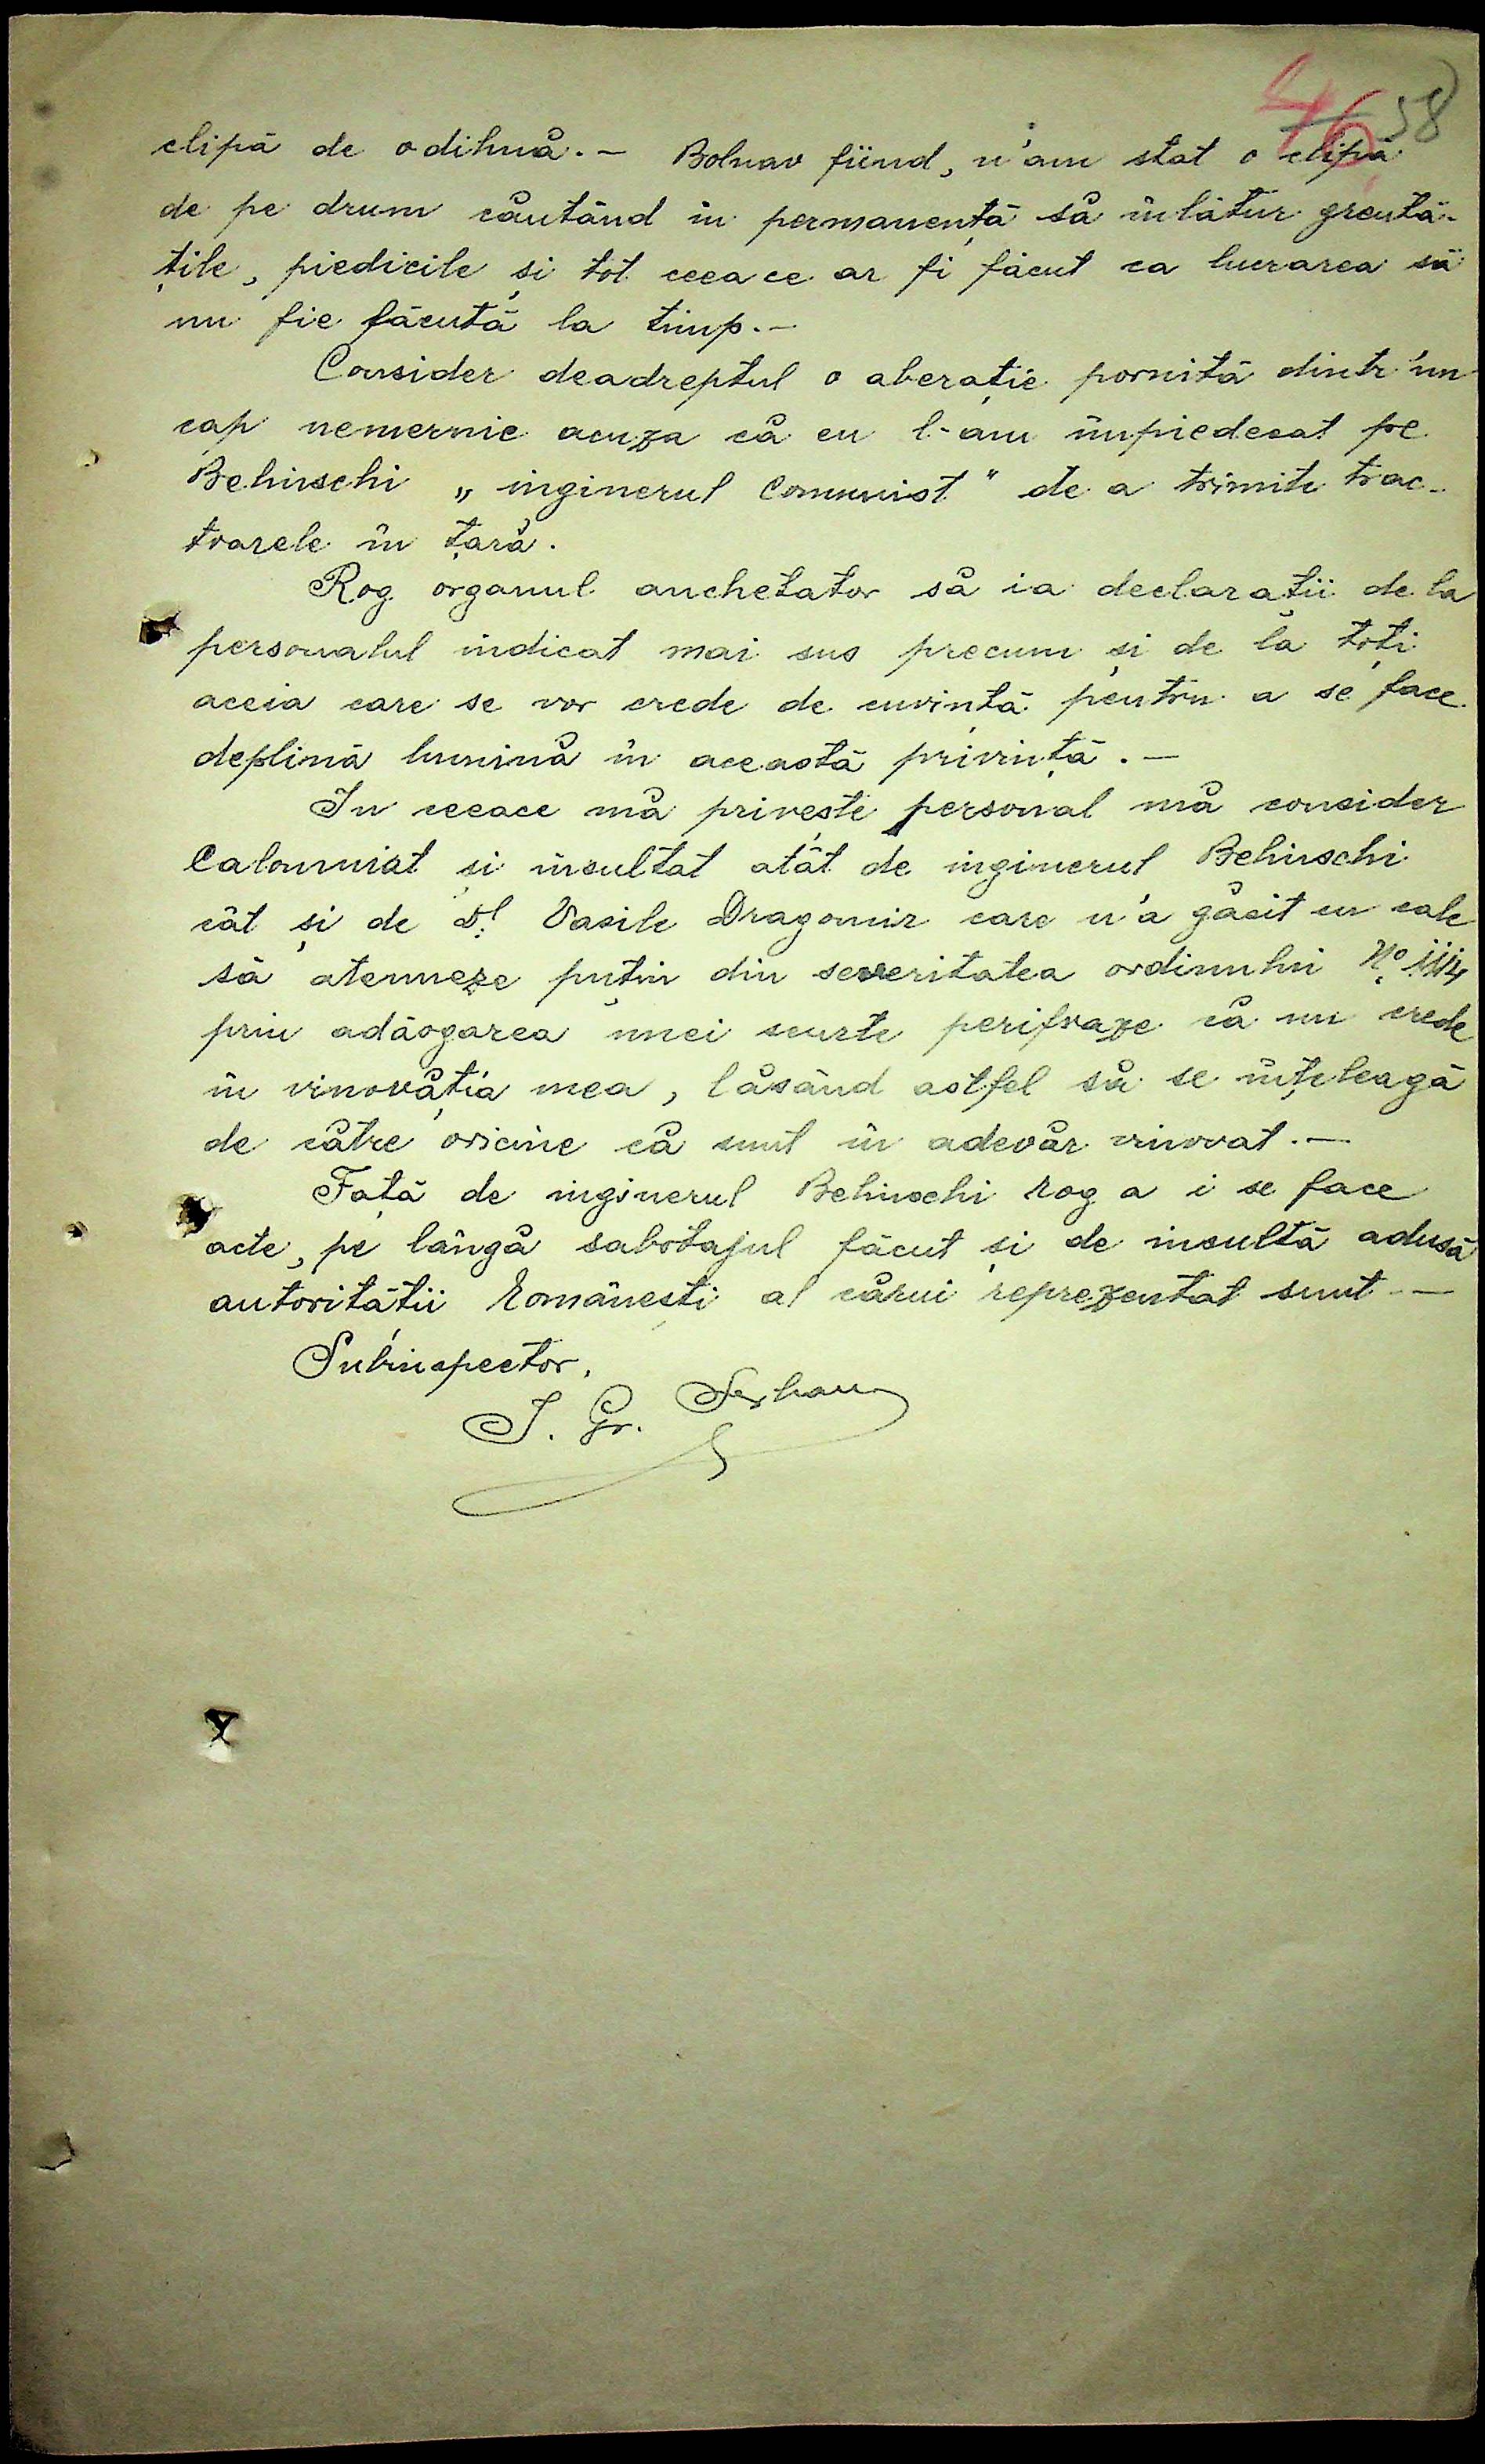 46 58
clipă de odihnă.— Bolnav fiind, n'am stat o clipă
de pe drum căutând în permanență să înlătur greută-
țile, piedicile și tot ceea ce ar fi făcut ca lucrarea să
nu fie făcută la timp.—
Consider deadreptul o aberație pornită dintr'un
cap nemernic acuza că eu l-am împiedecat pe
Behinschi „inginerul Comunist" de a trimite trac-
toarele în țară.
Rog organul anchetator să ia declarații de la
personalul indicat mai sus precum și de la toți
aceia care se vor crede de cuvință pentru a se face
deplină lumină în această privință.—
In ceeace mă privește personal mă consider
Calomniat și insultat atât de inginerul Behinschi
cât și de Dl. Vasile Dragomir care n'a găsit cu cale
să atenueze puțin din severitatea ordinului No.
prin adăogarea unei scurte perifraze că nu crede
în vinovăția mea, lăsând astfel să se înțeleagă
de către oricine că sunt în adevăr vinovat.—
Față de inginerul Behinschi rog a i se face
acte, pe lângă sabotajul făcut și de insultă adusă
autorității Românești al cărui reprezentat sunt.—
Subinspector,
J. Gr. Serban